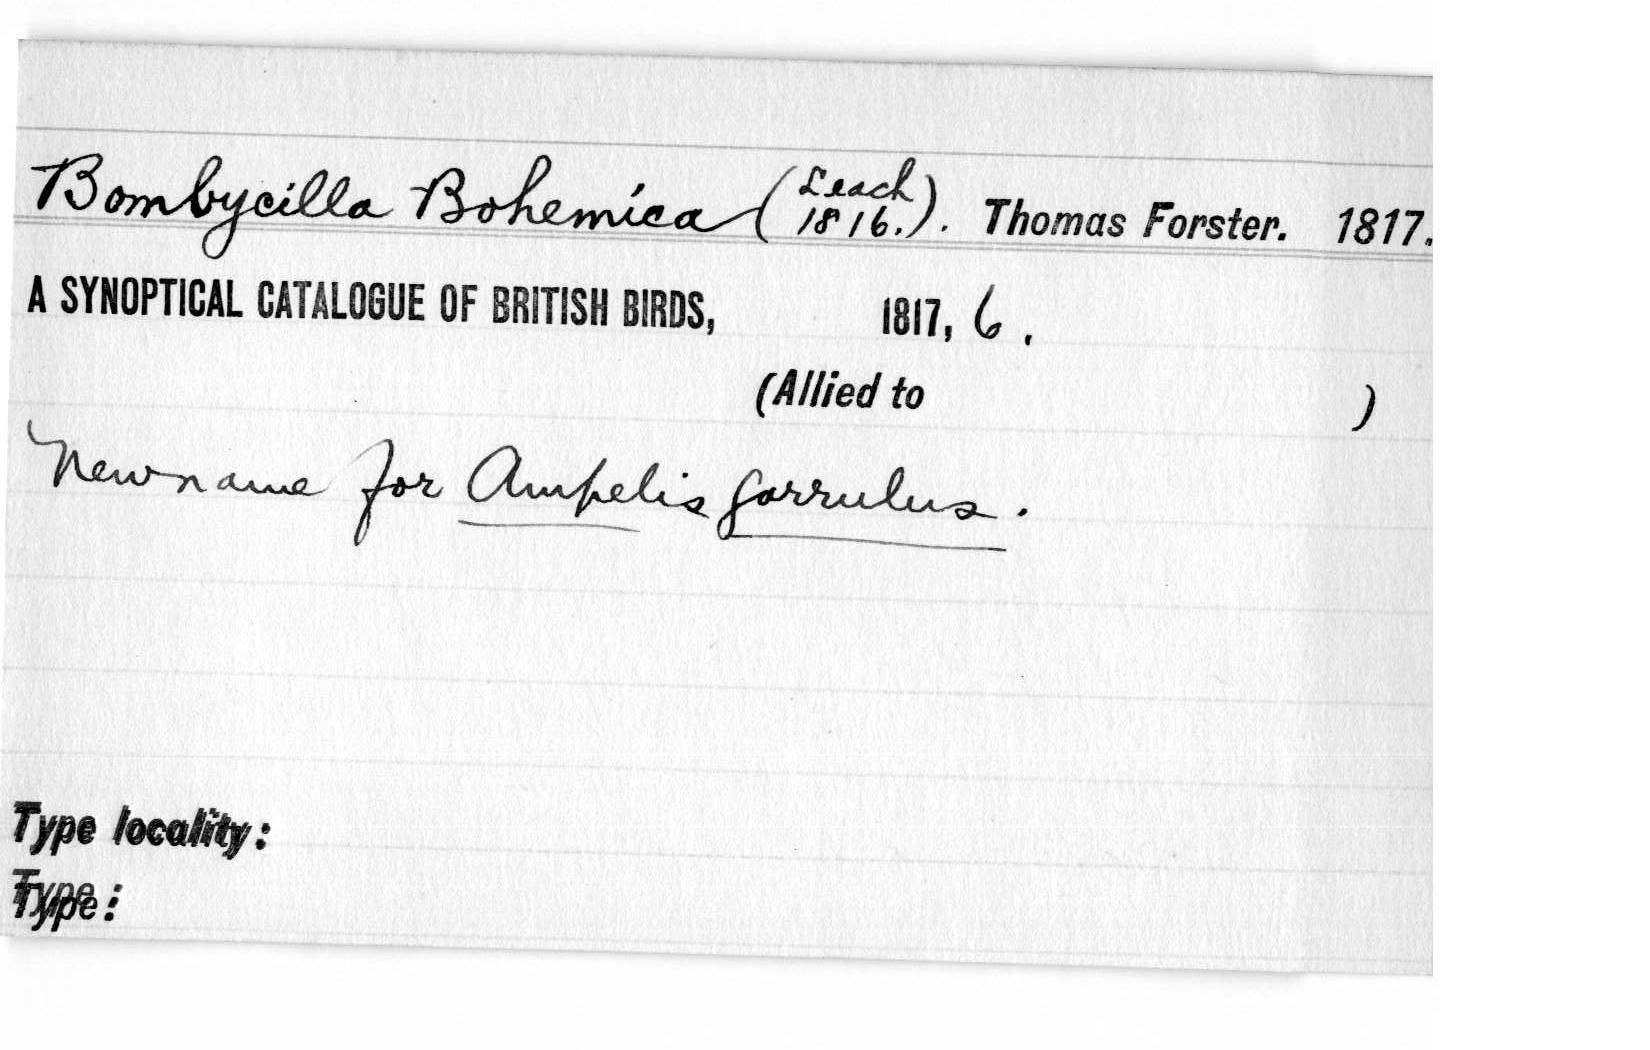 Bombycilla Bohemica (Leach 1816.). Thomas Forster. 1817.
A SYNOPTICAL CATALOGUE OF BRITISH BIRDS, 1817, 6.
(Allied to )
New name for Ampelis garrulus.
Type locality:
Type: